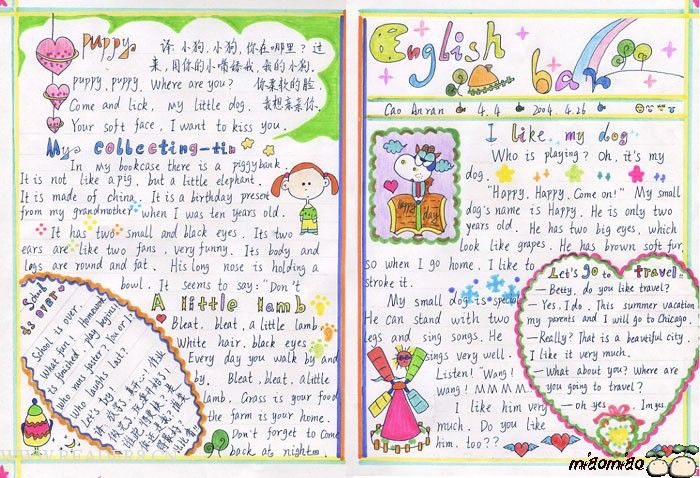 Puppy
译: 小狗, 小狗, 你在哪里? 过
来, 用你的小嘴舔我, 我的小狗.
puppy, puppy. Where are you? 你柔软的脸.
Come and lick, my little dog. 我想亲亲你.
Your soft face, I want to kiss you.
My collecting-tin
In my bookcase there is a piggybank
It is not like a pig, but a little elephant.
It is made of china. It is a birthday present
from my grandmother when I was ten years old.
It has two small and black eyes. Its two
ears are like two fans, very funny. Its body and
legs are round and fat. His long nose is holding a
bowl. It seems to say: "Don't
School is over
School is over.
what fun! Homework
is finished, play begins!
Who runs faster? You or I
Who laughs last?
Let's try.
A little lamb
Bleat, bleat, a little lamb,
White hair, black eyes.
Every day you walk by and
by. Bleat, bleat, a little
lamb. Grass is your food
the farm is your home.
Don't forget to come
back at night.
English ban
Cao Anran 4.4 2004.4.26
I like my dog
Who is playing? Oh, it's my
dog.
"Happy, Happy, Come on!" My small
dog's name is Happy. He is only two
years old. He has two big eyes, which
look like grapes. He has brown soft fur,
so when I go home. I like to
stroke it.
My small dog is special
He can stand with two
legs and sing songs. He
sings very well.
Listen! "Wang!
wang! M M M M..
I like him very
much. Do you like
him, too??
Happy day
Let's go to travel..
— Betty, do you like travel?
— Yes. I do. This summer vacation
my parents and I will go to Chicago.
— Really? That is a beautiful city.
I like it very much.
— What about you? Where are
you going to travel?
— oh yes
miaomiao